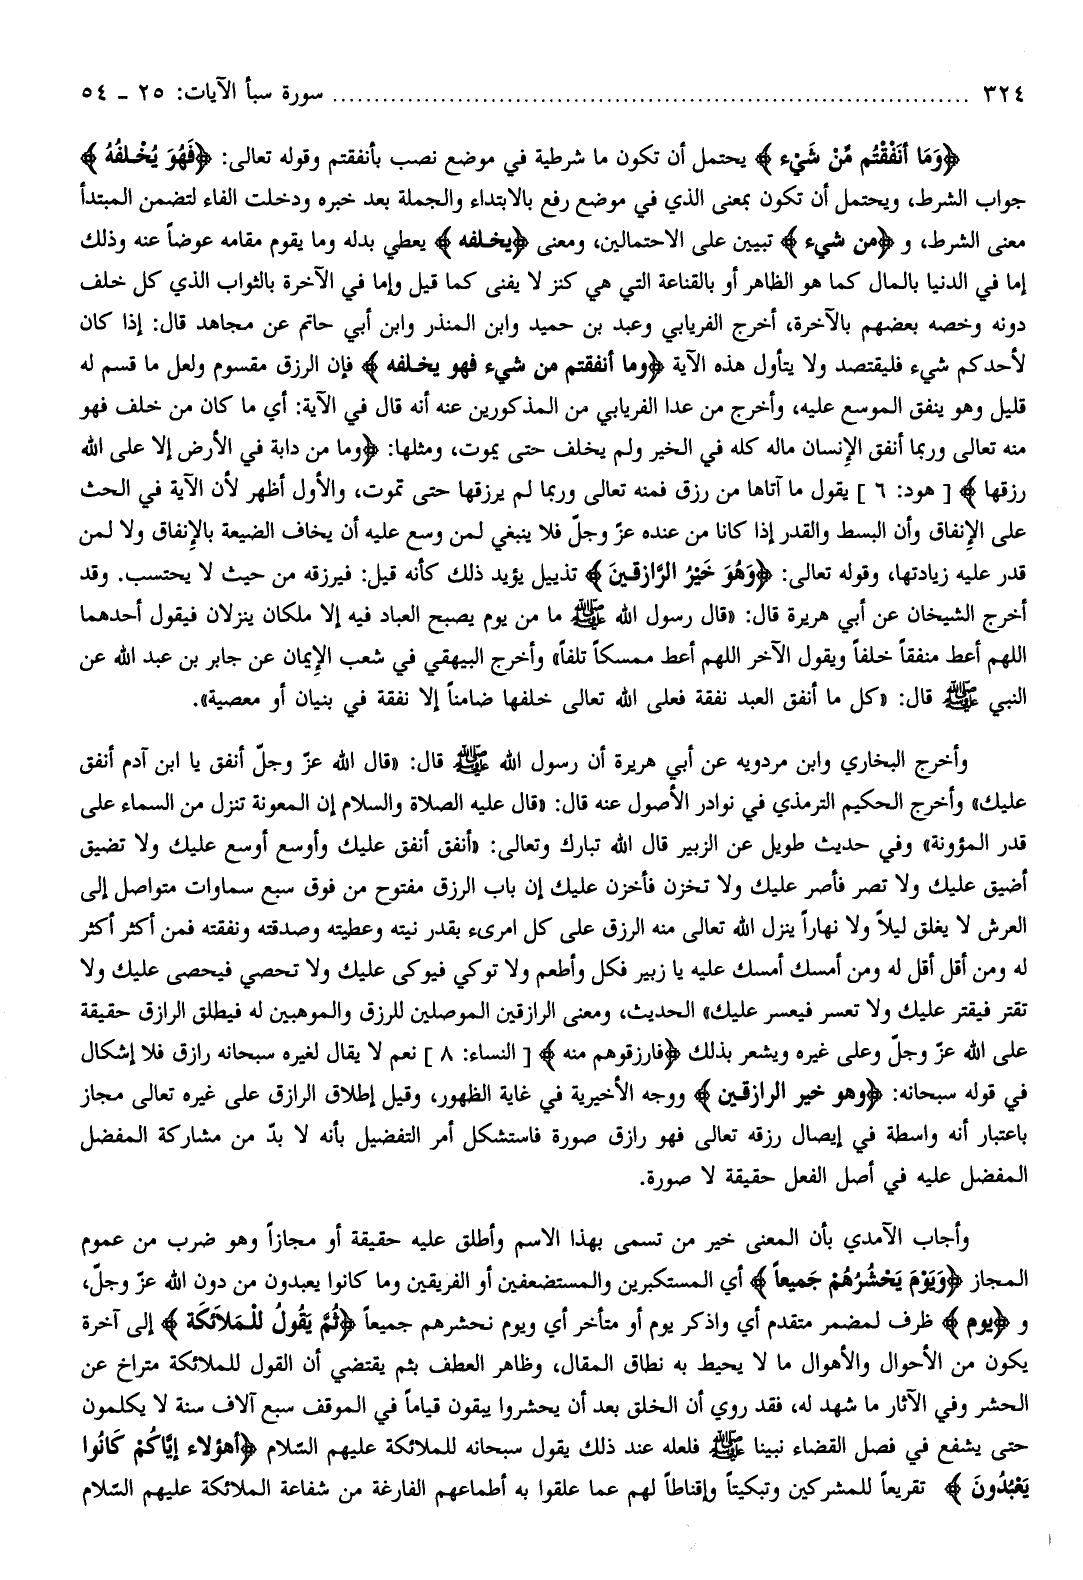 ٣٢٤ ........................................................................ سورة سبأ الآيات: ٢٥ ـ ٥٤
﴿وَمَا أَنفَقْتُم مِّنْ شَيْء﴾ يحتمل أن تكون ما شرطية في موضع نصب بأنفقتم وقوله تعالى: ﴿فَهُوَ يُخْلفُهُ﴾
جواب الشرط، ويحتمل أن تكون بمعنى الذي في موضع رفع بالابتداء والجملة بعد خبره ودخلت الفاء لتضمن المبتدأ
معنى الشرط، و ﴿من شيء﴾ تبيين على الاحتمالين، ومعنى ﴿يخلفه﴾ يعطي بدله وما يقوم مقامه عوضاً عنه وذلك
إما في الدنيا بالمال كما هو الظاهر أو بالقناعة التي هي كنز لا يفنى كما قيل وإما في الآخرة بالثواب الذي كل خلف
دونه وخصه بعضهم بالآخرة، أخرج الفريابي وعبد بن حميد وابن المنذر وابن أبي حاتم عن مجاهد قال: إذا كان
لأحدكم شيء فليقتصد ولا يتأول هذه الآية ﴿وما أنفقتم من شيء فهو يخلفه﴾ فإن الرزق مقسوم ولعل ما قسم له
قليل وهو ينفق الموسع عليه، وأخرج من عدا الفريابي من المذكورين عنه أنه قال في الآية: أي ما كان من خلف فهو
منه تعالى وربما أنفق الإنسان ماله كله في الخير ولم يخلف حتى يموت، ومثلها: ﴿وما من دابة في الأرض إلا على الله
رزقها﴾ [ هود: ٦ ] يقول ما آتاها من رزق فمنه تعالى وربما لم يرزقها حتى تموت، والأول أظهر لأن الآية في الحث
على الإنفاق وأن البسط والقدر إذا كانا من عنده عزّ وجلّ فلا ينبغي لمن وسع عليه أن يخاف الضيعة بالإنفاق ولا لمن
قدر عليه زيادتها، وقوله تعالى: ﴿وَهُوَ خَيْرُ الرَّازقينَ﴾ تذييل يؤيد ذلك كأنه قيل: فيرزقه من حيث لا يحتسب. وقد
أخرج الشيخان عن أبي هريرة قال: «قال رسول الله ﷺ ما من يوم يصبح العباد فيه إلا ملكان ينزلان فيقول أحدهما
اللهم أعط منفقاً خلفاً ويقول الآخر اللهم أعط ممسكاً تلفاً» وأخرج البيهقي في شعب الإيمان عن جابر بن عبد الله عن
النبي ﷺ قال: «كل ما أنفق العبد نفقة فعلى الله تعالى خلفها ضامناً إلا نفقة في بنيان أو معصية».
وأخرج البخاري وابن مردويه عن أبي هريرة أن رسول الله ﷺ قال: «قال الله عزّ وجلّ أنفق يا ابن آدم أنفق
عليك» وأخرج الحكيم الترمذي في نوادر الأصول عنه قال: «قال عليه الصلاة والسلام إن المعونة تنزل من السماء على
قدر المؤونة» وفي حديث طويل عن الزبير قال الله تبارك وتعالى: «أنفق أنفق عليك وأوسع أوسع عليك ولا تضيق
أضيق عليك ولا تصر فأصر عليك ولا تخزن فأخزن عليك إن باب الرزق مفتوح من فوق سبع سماوات متواصل إلى
العرش لا يغلق ليلاً ولا نهاراً ينزل الله تعالى منه الرزق على كل امرىء بقدر نيته وعطيته وصدقته ونفقته فمن أكثر أكثر
له ومن أقل أقل له ومن أمسك أمسك عليه يا زبير فكل وأطعم ولا توكي فيوكى عليك ولا تحصي فيحصى عليك ولا
تقتر فيقتر عليك ولا تعسر فيعسر عليك» الحديث، ومعنى الرازقين الموصلين للرزق والموهبين له فيطلق الرازق حقيقة
على الله عزّ وجلّ وعلى غيره ويشعر بذلك ﴿فارزقوهم منه﴾ [ النساء: ٨ ] نعم لا يقال لغيره سبحانه رازق فلا إشكال
في قوله سبحانه: ﴿وهو خير الرازقين﴾ ووجه الأخيرية في غاية الظهور، وقيل إطلاق الرازق على غيره تعالى مجاز
باعتبار أنه واسطة في إيصال رزقه تعالى فهو رازق صورة فاستشكل أمر التفضيل بأنه لا بدّ من مشاركة المفضل
المفضل عليه في أصل الفعل حقيقة لا صورة.
وأجاب الآمدي بأن المعنى خير من تسمى بهذا الاسم وأطلق عليه حقيقة أو مجازاً وهو ضرب من عموم
المجاز ﴿وَيَوْمَ يَحْشُرُهُمْ جَميعاً﴾ أي المستكبرين والمستضعفين أو الفريقين وما كانوا يعبدون من دون الله عزّ وجلّ،
و ﴿يوم﴾ ظرف لمضمر متقدم أي واذكر يوم أو متأخر أي ويوم نحشرهم جميعاً ﴿ثُمَّ يَقُولُ للْمَلاَئكَة﴾ إلى آخرة
يكون من الأحوال والأهوال ما لا يحيط به نطاق المقال، وظاهر العطف بثم يقتضي أن القول للملائكة متراخ عن
الحشر وفي الآثار ما شهد له، فقد روي أن الخلق بعد أن يحشروا يبقون قياماً في الموقف سبع آلاف سنة لا يكلمون
حتى يشفع في فصل القضاء نبينا ﷺ فلعله عند ذلك يقول سبحانه للملائكة عليهم السّلام ﴿أَهؤُلاء إيَّاكُمْ كَانُوا
يَعْبُدُونَ﴾ تقريعاً للمشركين وتبكيتاً وإقناطاً لهم عما علقوا به أطماعهم الفارغة من شفاعة الملائكة عليهم السّلام